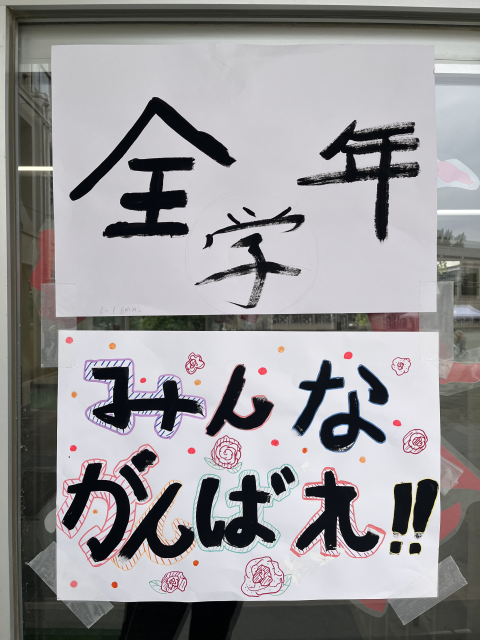 全学年
みんな
がんばれ!!